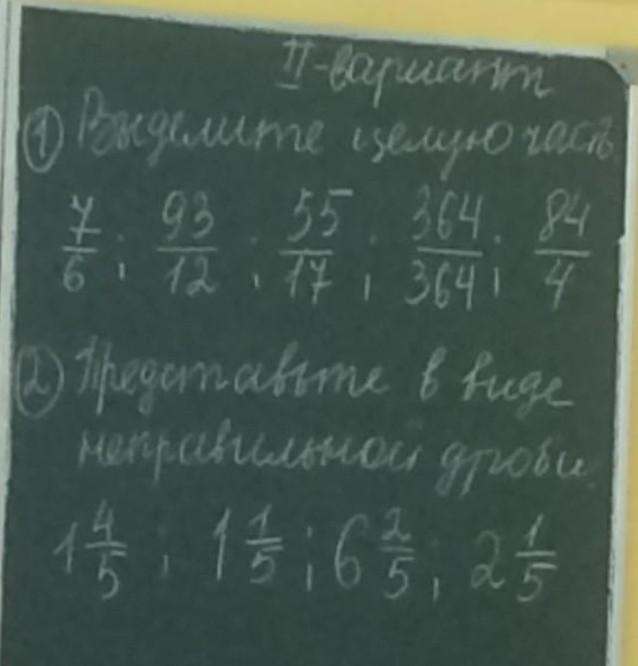 II-вариант
① Выделите целую часть
7/6; 93/12; 55/17; 364/364; 84/4
② Представьте в виде
неправильной дроби.
1 4/5; 1 1/5; 6 2/5; 2 1/5